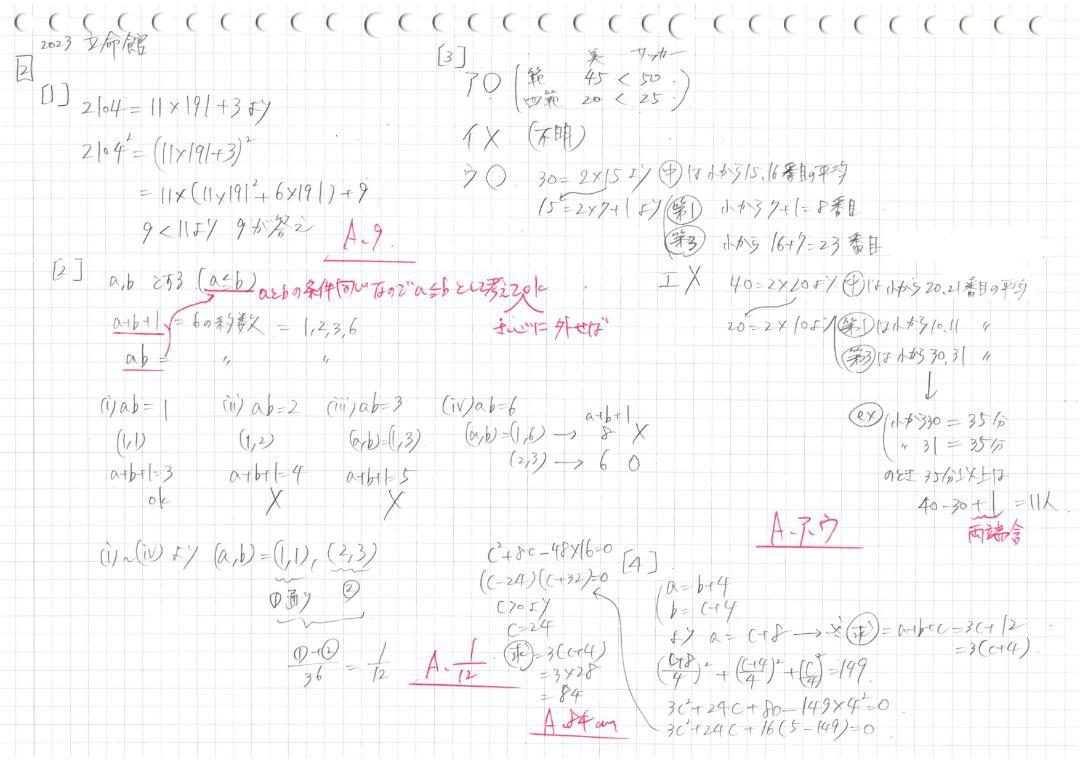 2023 立命館
2
[1]
2104 = 11×191+3 より
2104² = (11×191+3)²
= 11×(11×191²+6×191)+9
9<11より 9が答え
A. 9
[2]
a,b とする (a≦b)
aとbの条件同じなのでa≦bとして考えてok
a+b+1 = 6の約数 = 1,2,3,6
さいごに 外せば
ab = 〃 〃
(i) ab=1 (ii) ab=2 (iii) ab=3 (iv) ab=6
a+b+1
(1,1) (1,2) (a,b)=(1,3) (a,b)=(1,6) → 8 X
(2,3) → 6 O
a+b+1=3 a+b+1=4 a+b+1=5
ok X X
(i)~(iv) より (a,b) = (1,1), (2,3)
①通り ②
①+②/36 = 1/12
A. 1/12
[3]
美 サッカー
ア〇 範 45 < 50
四範 20 < 25
イX (不明)
ウ〇 30=2×15より 中は小から15,16番目の平均
15=2×7+1より 第1 小から7+1=8番目
第3 小から 16+7=23番目
エX 40=2×20より 中は小から20,21番目の平均
20=2×10より 第1は小から10,11 〃
第3は小から30,31 〃
↓
ex 小から30 = 35分
〃 31 = 35分
のとき 35分以上は
40-30+1 = 11人
両端含
A. ア、ウ
[4]
a=b+4
b=c+4
より a=c+8 → 求=a+b+c=3c+12
=3(c+4)
(c+8/4)²+(c+4/4)²+(c/4)²=149
3c²+24c+80-149×4²=0
3c²+24c+16(5-149)=0
c²+8c-48×16=0
(c-24)(c+32)=0
c>0より
c=24
求=3(c+4)
=3×28
=84
A. 84cm